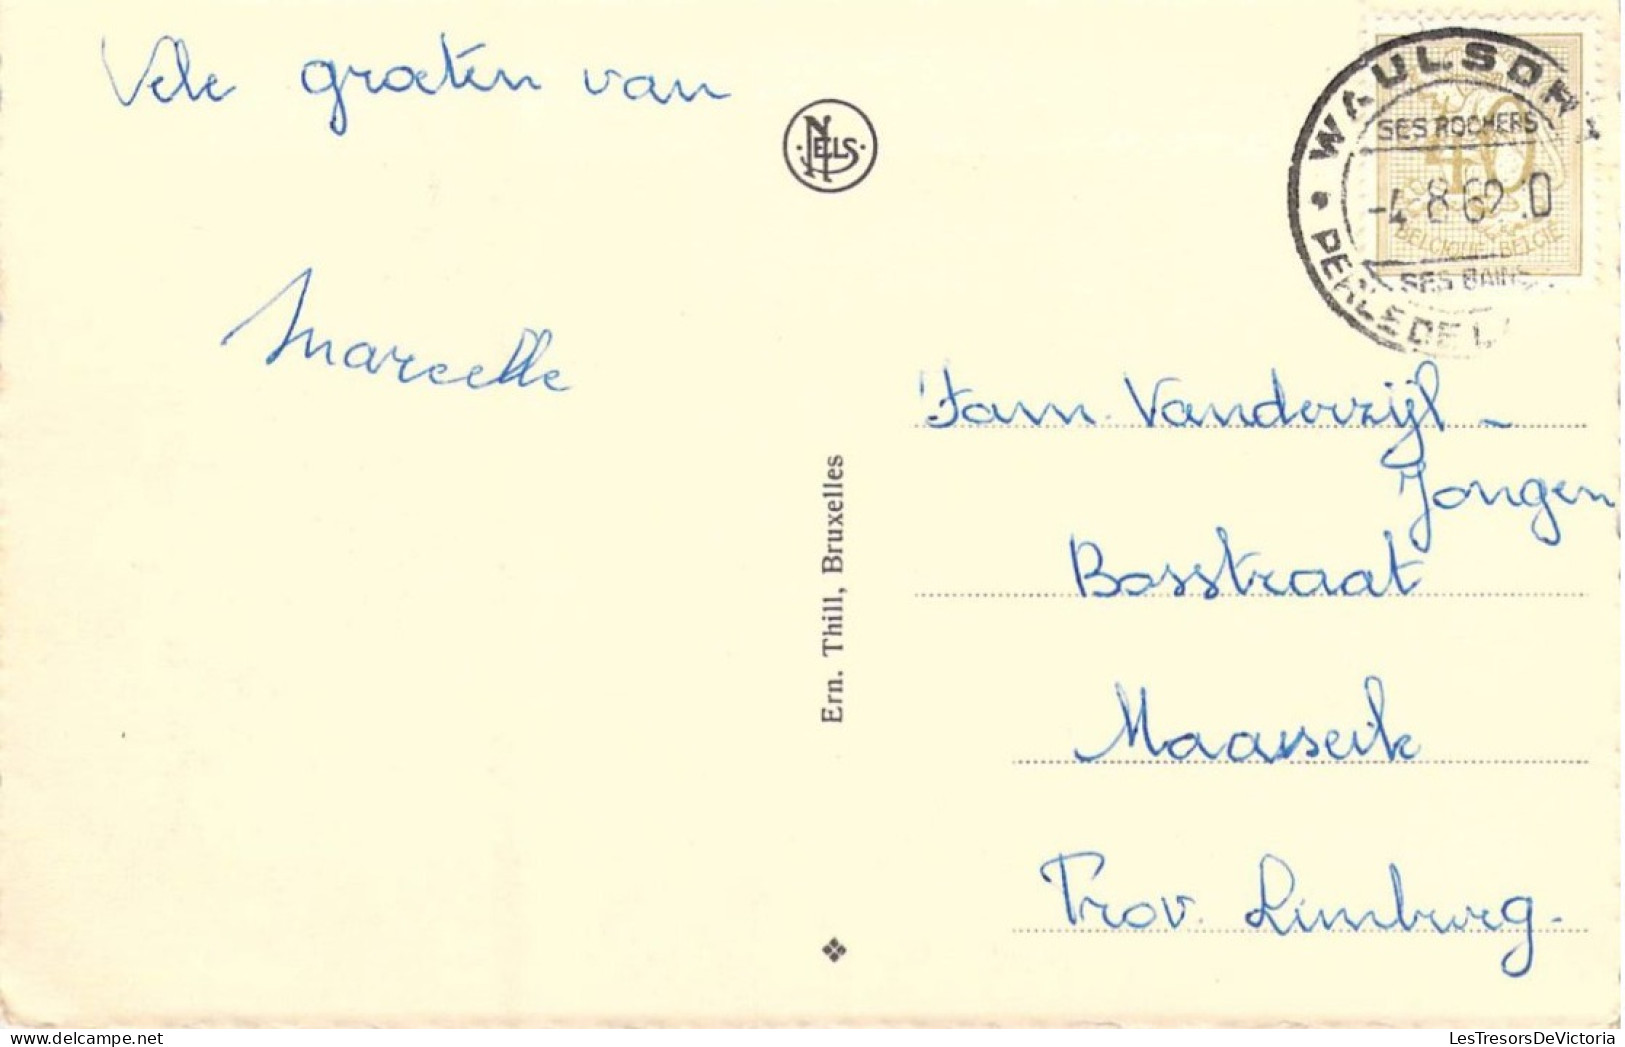 Vele groeten van
Marcelle
NELS
Ern. Thill, Bruxelles
WAULSOR
SES ROCHERS
-4 8 62
SES BAINS
PERLE DE L
40
BELGIQUE BELGIË
Fam. Vanderzijl -
Jongen
Bosstraat
Maaseik
Prov. Limburg.
LesTresorsDeVictoria